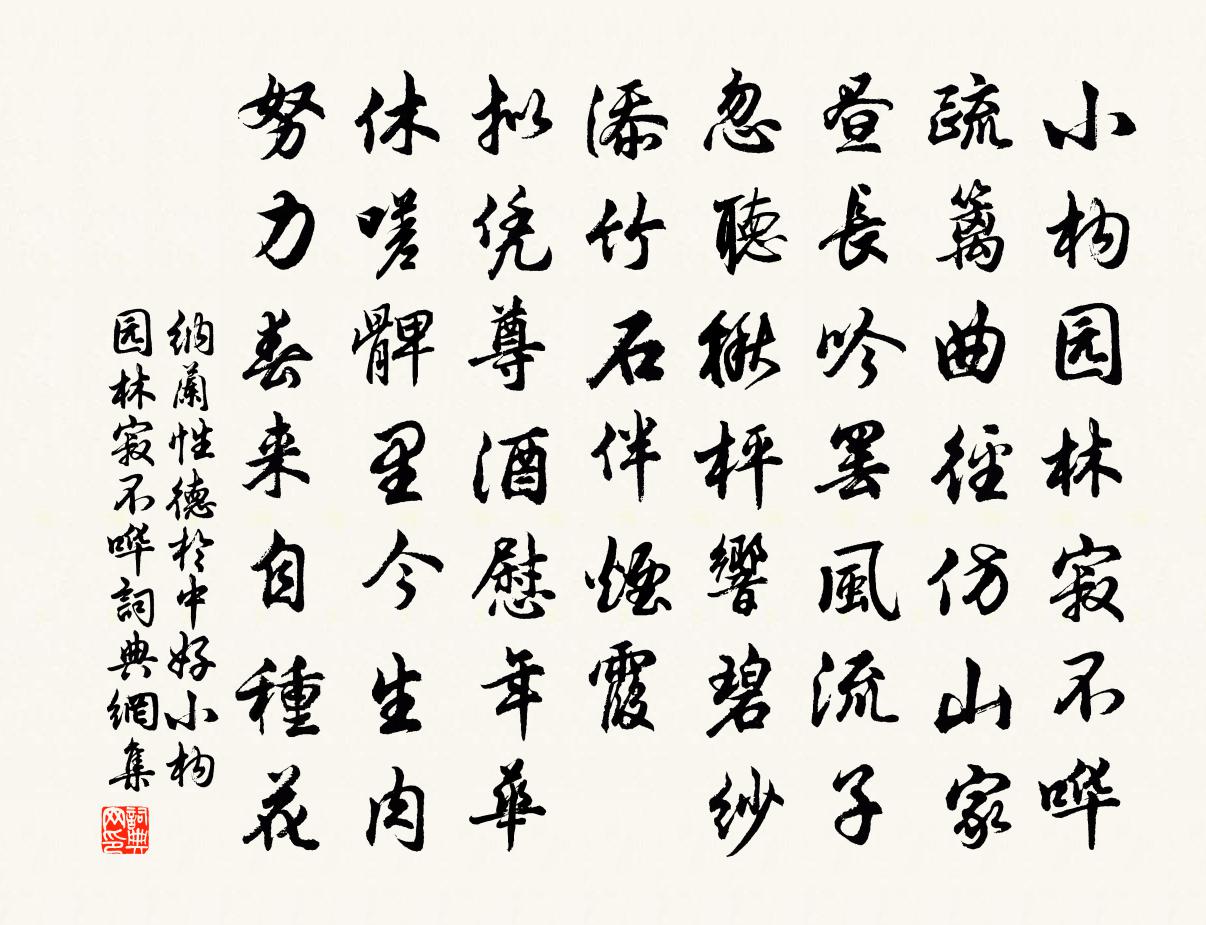 小构园林寂不哗
疏篱曲径仿山家
昼長吟罢風流子
忽聽楸枰響碧纱
添竹石伴煙霞
拟凭尊酒慰年華
休嗟髀里今生肉
努力春来自種花
纳蘭性德於中好小构
园林寂不哗詞典網集
詞典网印